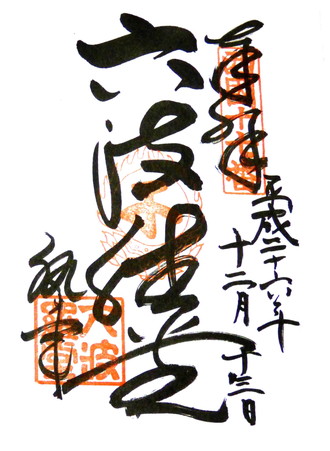 奉拝
平成二十六年
十二月
十三日
六波羅堂
執事